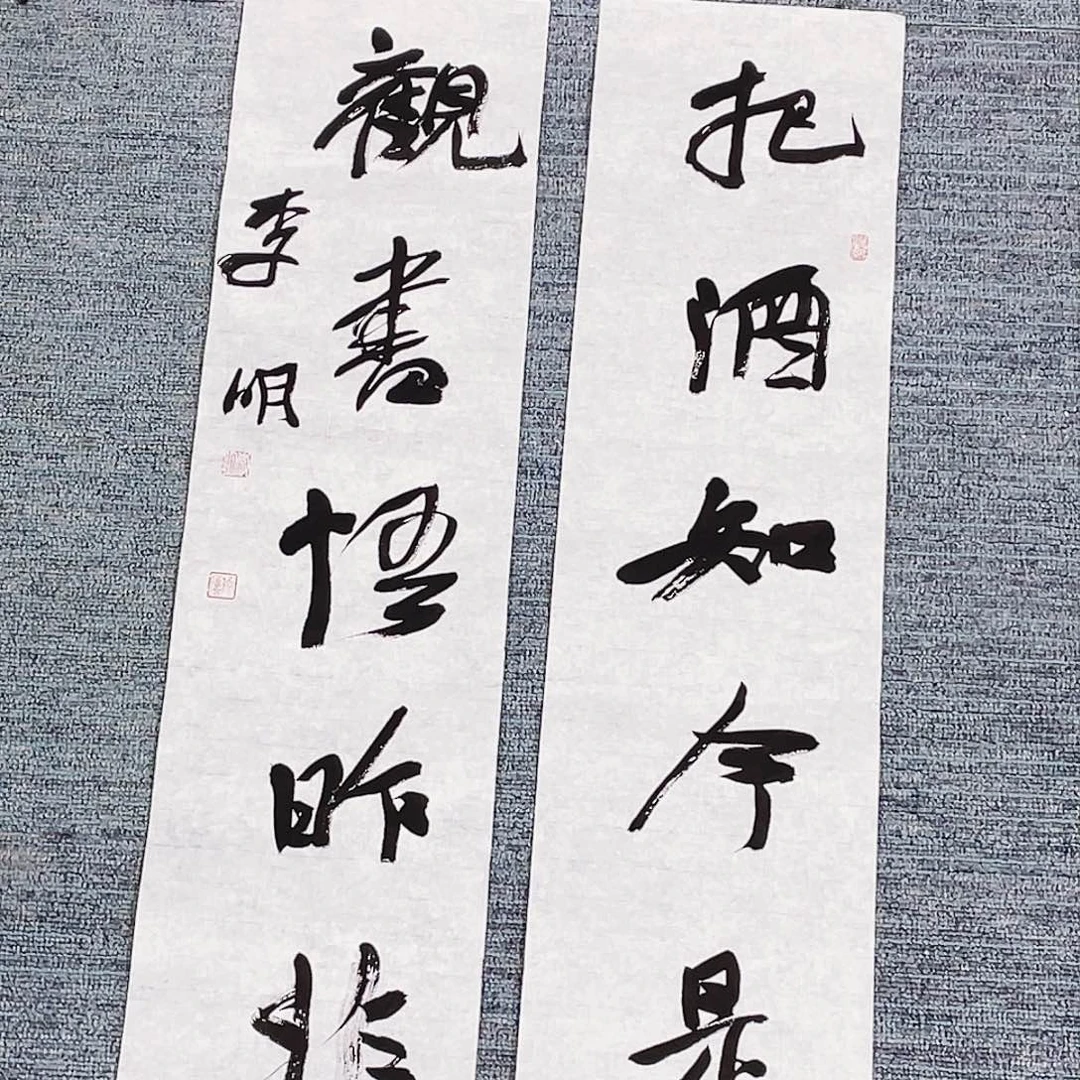 把酒知今是
觀書悟昨非
李明